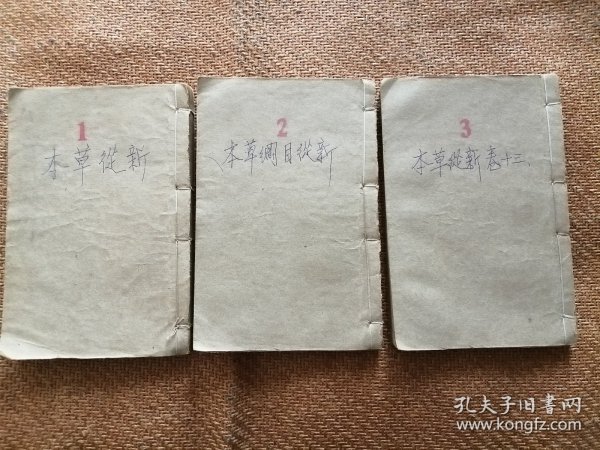 1
本草從新
2
本草綱目從新
3
本草從新卷十三
孔夫子旧書网
www.kongfz.com